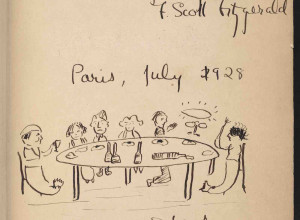 F. Scott Fitzgerald
Paris, July 1928